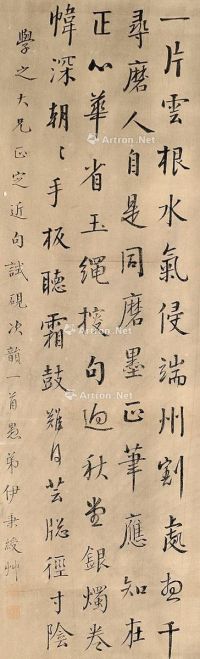 一片雲根水氣侵端州割處直千
尋磨人自是同磨墨正筆應知在
正心華省玉繩句迥秋堂銀燭卷
幃深朝〻手板聽霜鼓難得芸牕徑寸陰
學之大兄正定近句試硯次韻一首愚弟伊秉綬艸
Artron.Net
Artron.Net
Artron.Net